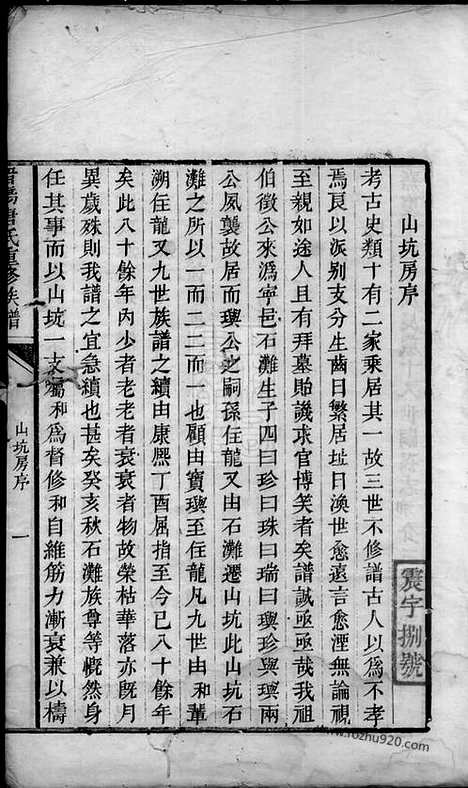 山坑房序
考古史類十有二家乘居其一故三世不修譜古人以爲不孝
焉良以派别支分生齒日繁居址日渙世愈遠言愈湮無論視
至親如途人且有拜墓貽譏求官博笑者矣譜誠亟亟哉我祖
伯徵公來爲寧邑石灘生子四曰珍曰珠曰瑞曰璵珍與璵兩
公夙襲故居而璵公之嗣孫住龍又由石灘遷山坑此山坑石
灘之所以一而二二而一也顧由寶璵至住龍凡九世由和輩
溯住龍又九世族譜之續由康熈丁酉屈指至今已八十餘年
矣此八十餘年内少者老老者衰衰者物故榮枯華落亦既月
異歲殊則我譜之宜急續也甚矣癸亥秋石灘族尊等慨然身
任其事而以山坑一支屬和爲督修和自維筋力漸衰兼以檮
氏重修族譜
山坑房序
一
震字捌號
www.rozhu920.com